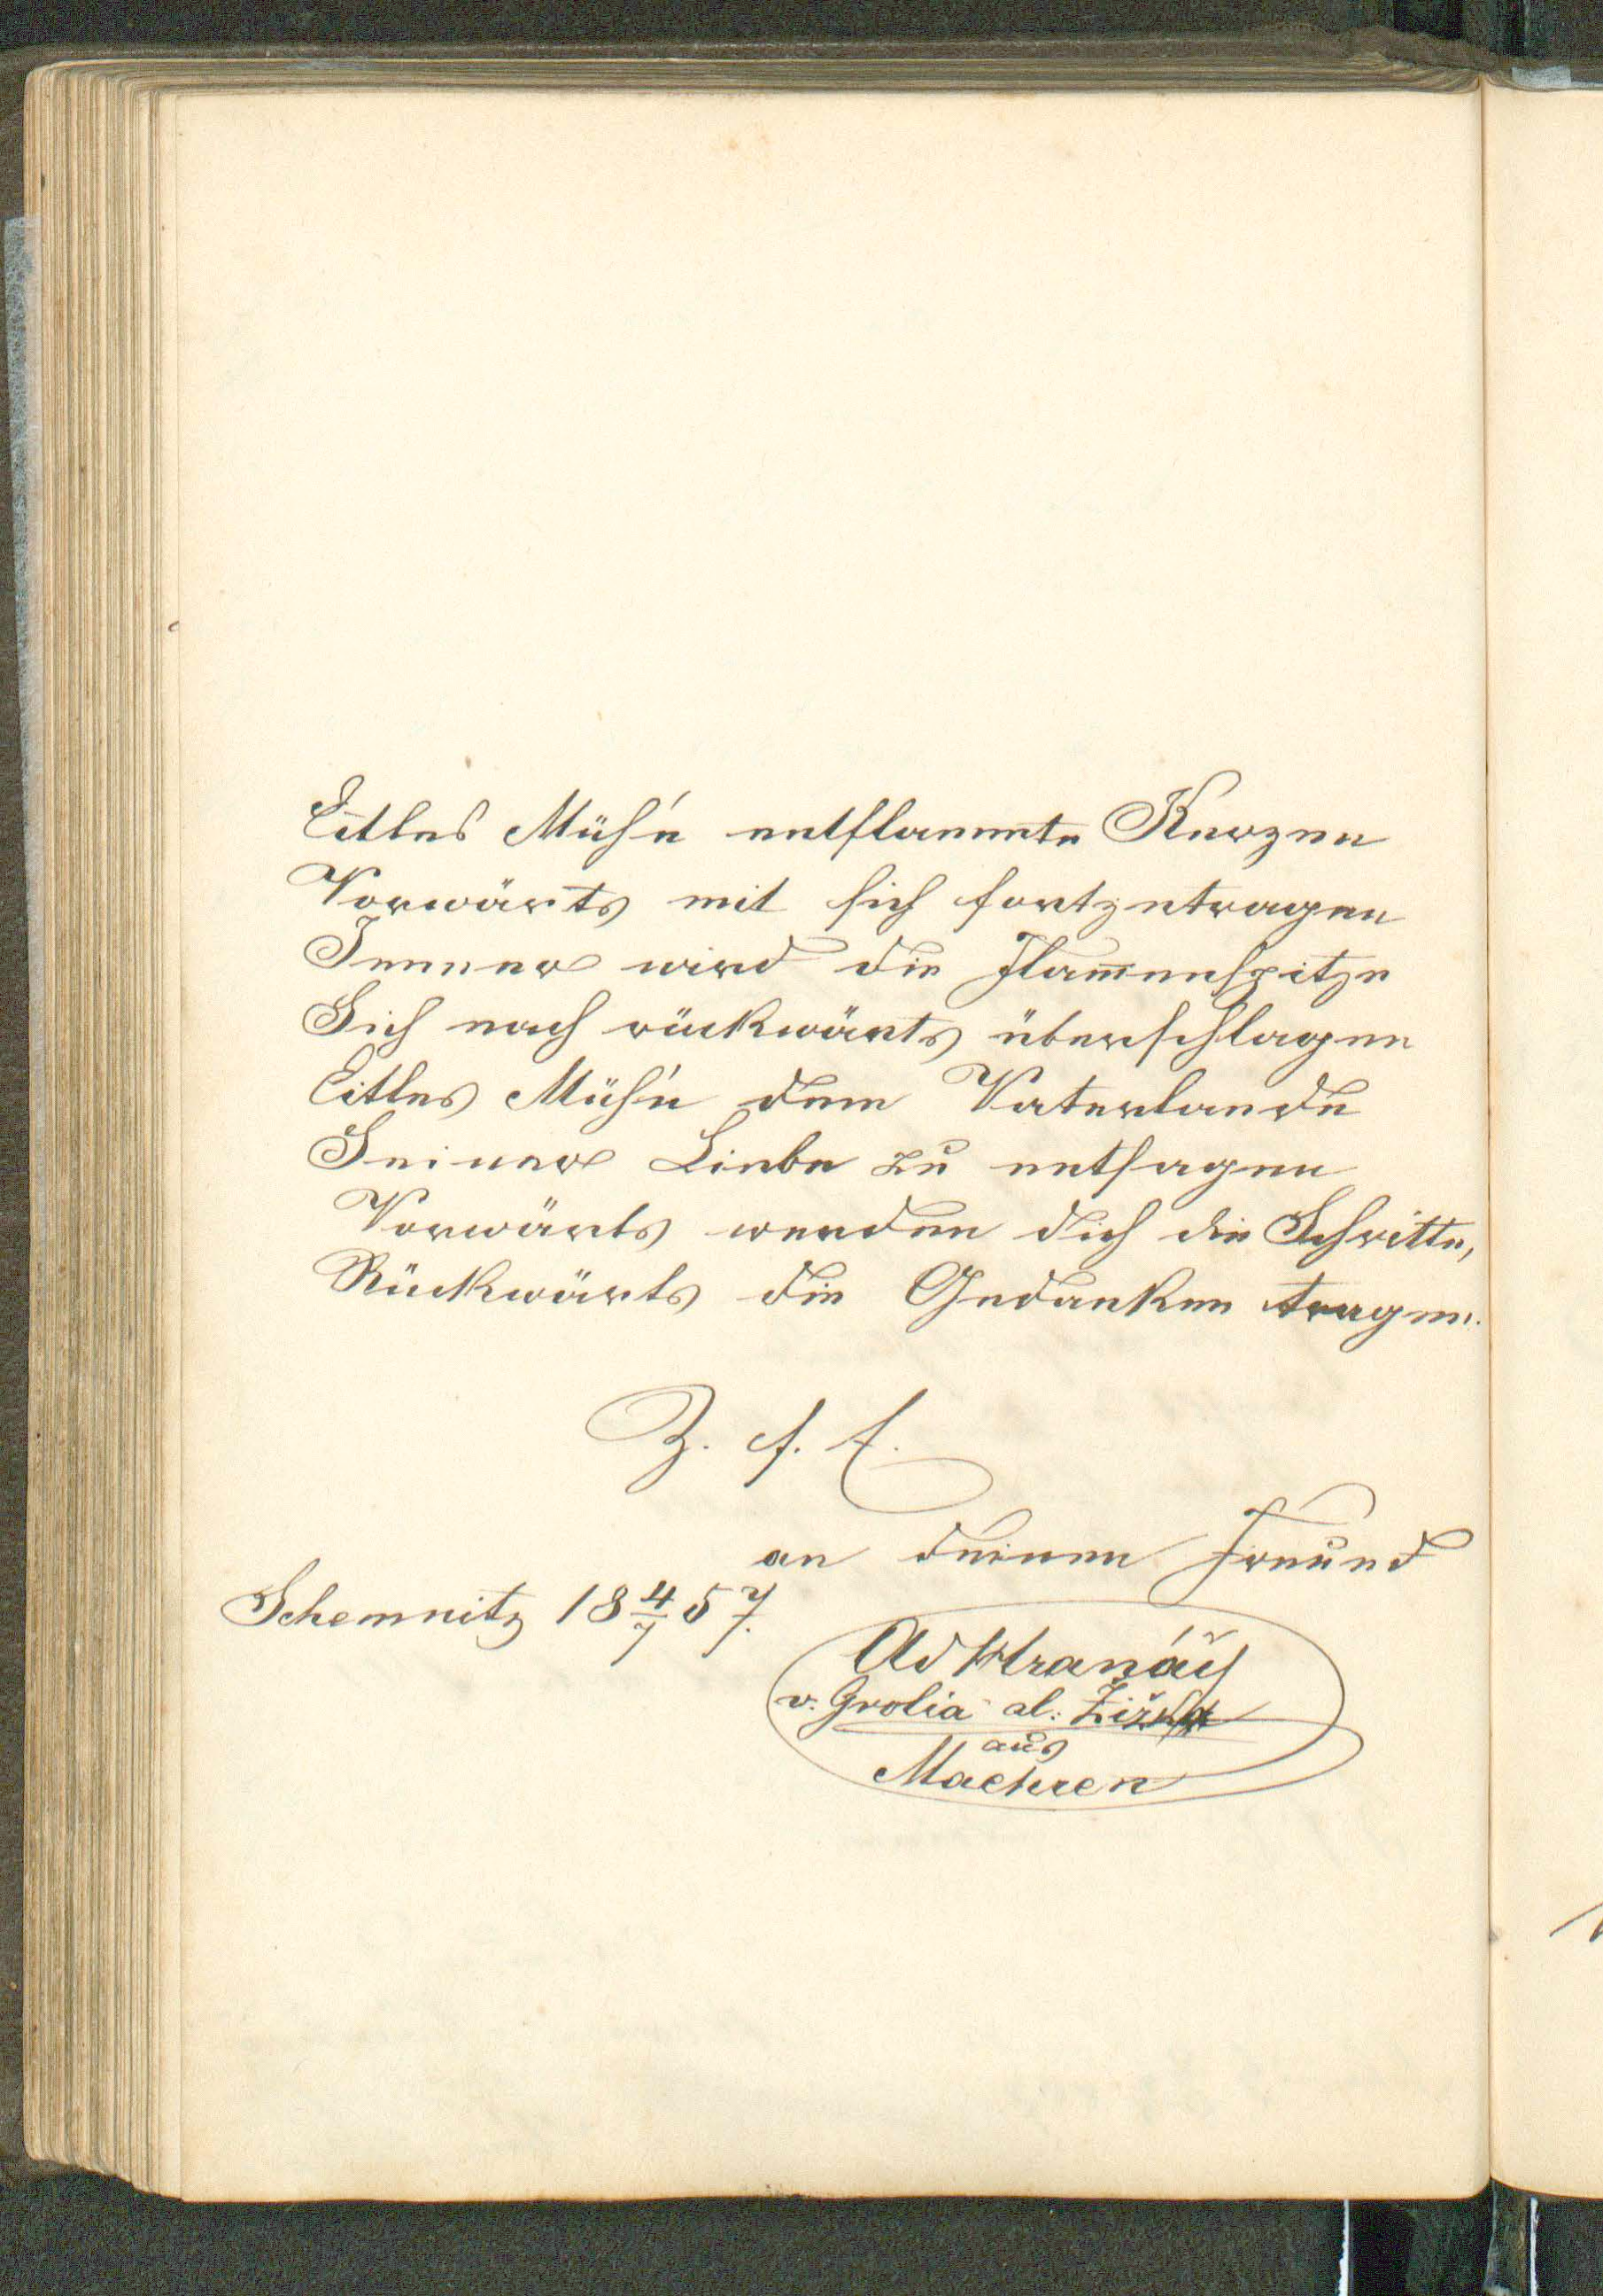 Eitles Müh'n entflammte Kerzen
Vorwärts mit sich fortzutragen
Immer wird die Flam̄enspitze
Sich nach rückwärts überschlagen
Eitles Müh'n dem Vaterlande
Seiner Liebe zu entsagen
Vorwärts werden dich die Schritte,
Rückwärts die Gedanken tragen.
Z. f. E.
an deinen Freund
Schemnitz 18 4/7 57.
Ad Hranáč
v. Grolia al: Žižka
aus
Maehren